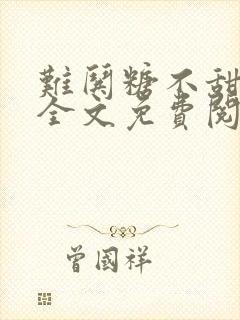 難鬨糖不甜
全文免費閱
曾國祥